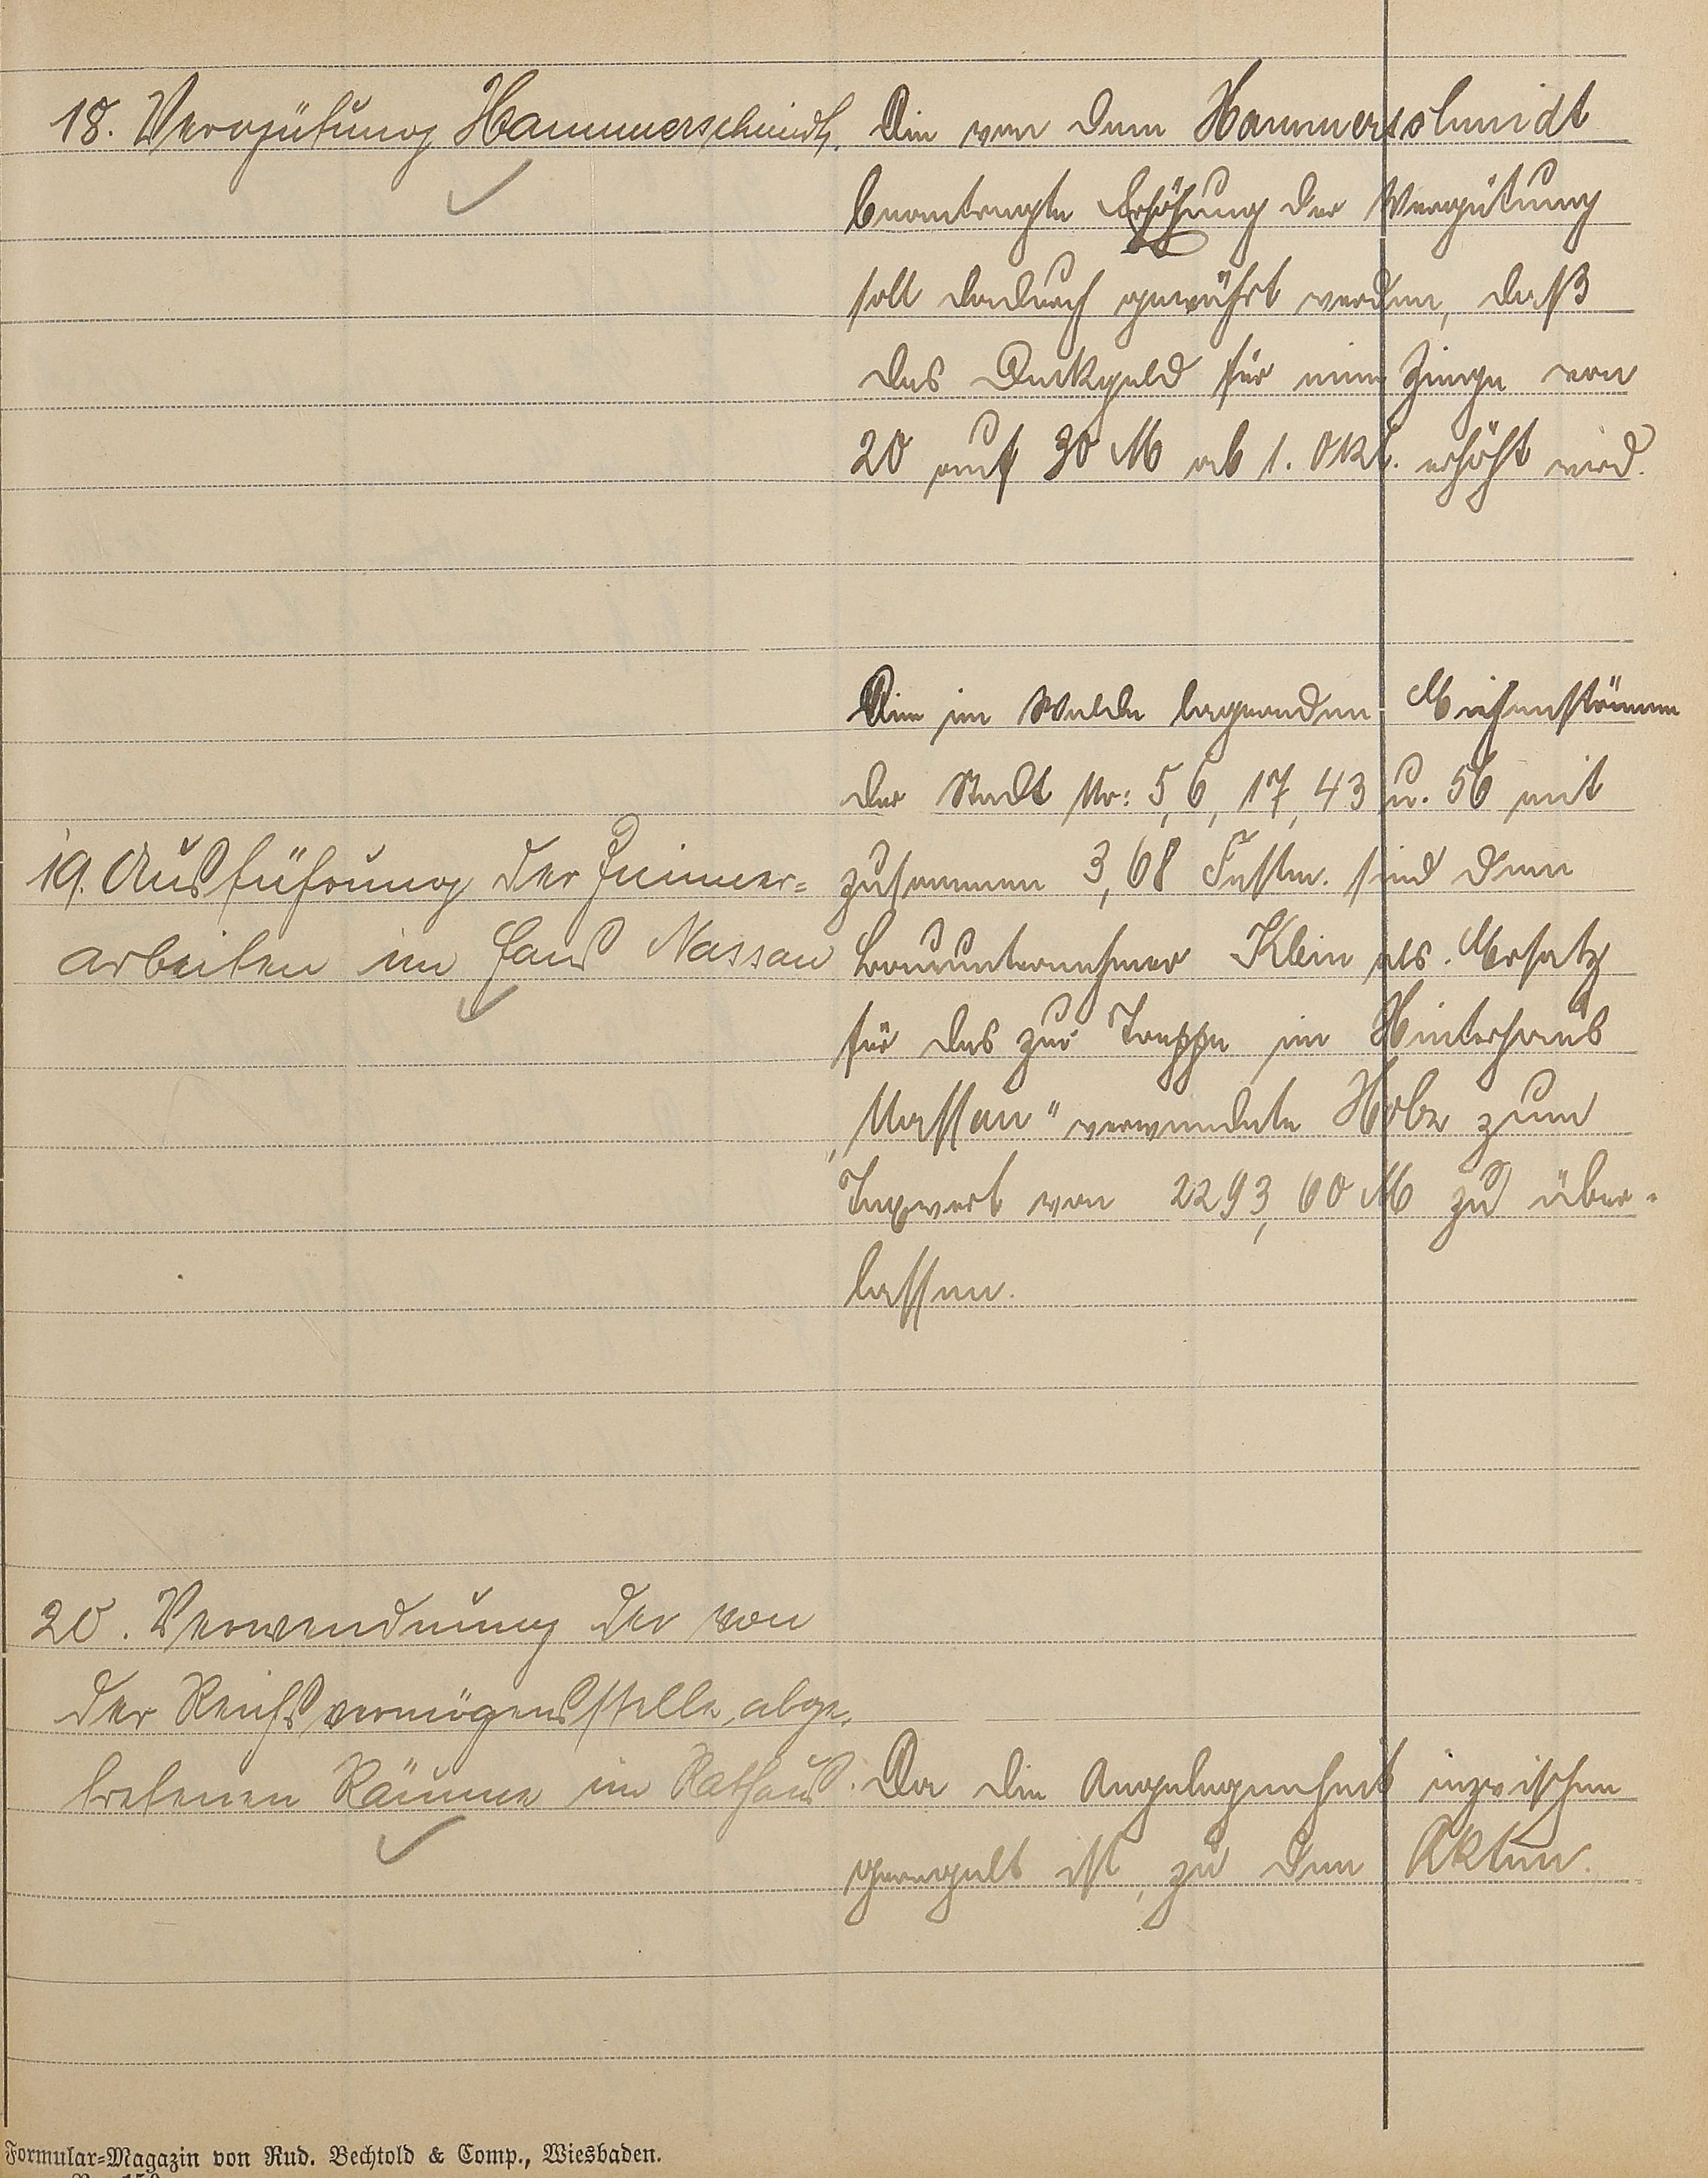 18. Vergütung Hammerschmidt.
Die von dem Hammerschmidt
beantragte Erhöhung der Vergütung
soll dadurch gewährt werden, daß
das Deckgeld für eine Ziege von
20 auf 30 M ab 1. Okt. erhöht wird.
19. Ausführung der Zimmer=
arbeiten im Haus Nassau
Die im Walde lagernden Eichenstämme
der Stadt Nr: 5, 6, 17, 43 u. 56 mit
zusammen 3,68 Festm. sind dem
Bauunternehmer Klein als Ersatz
für das zur Treppe im Hinterhaus
„Nassau" verwendete Holz zum
Taxwert von 2293,60 M zu über-
lassen.
20. Verwendung der von
der Reichsvermögensstelle abge-
tretenen Räume im Rathaus.
Da die Angelegenheit inzwischen
geregelt ist, zu den Akten.
Formular=Magazin von Rud. Bechtold & Comp., Wiesbaden.